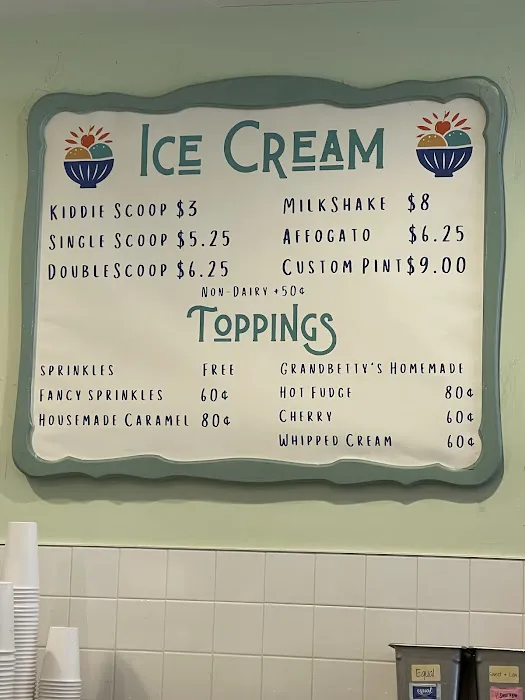 ICE CREAM
KIDDIE SCOOP $3
SINGLE SCOOP $5.25
DOUBLESCOOP $6.25
MILKSHAKE $8
AFFOGATO $6.25
CUSTOM PINT $9.00
NON-DAIRY +50¢
TOPPINGS
SPRINKLES FREE
FANCY SPRINKLES 60¢
HOUSEMADE CARAMEL 80¢
GRANDBETTY'S HOMEMADE
HOT FUDGE 80¢
CHERRY 60¢
WHIPPED CREAM 60¢
Equal
equal